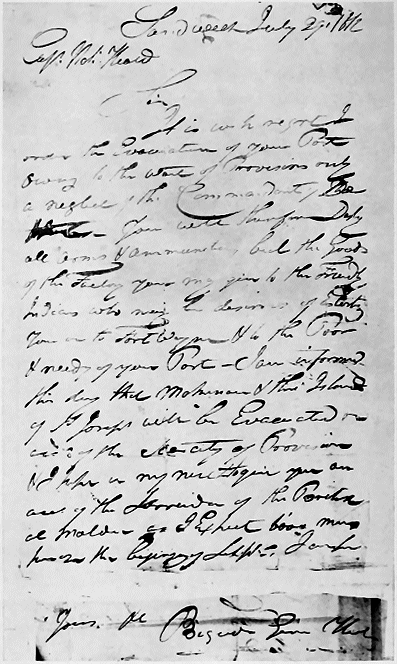 Sandwich July 29th 1812
Capt. Nat. Heald
Sir
It is with regret I
order the Evacuation of your Post
owing to the want of Provisions only
a neglect of the Commandant of
You will therefore Destroy
all arms & ammunition but the Goods
of the Factory you may give to the Friendly
Indians who may be desirous of Escorting
you on to Fort Wayne & to the Poor
& needy of your Post – I am informed
this day that Makinac & the Island
of St Joseph will be Evacuated on
acct of the scarcity of Provision
& I hope in my next to give you an
acct of the Surrender of the British
at Malden as I Expect 600 men
here by the begining of Sept. I am Sir
Yours &c Brigadier Gen Hull